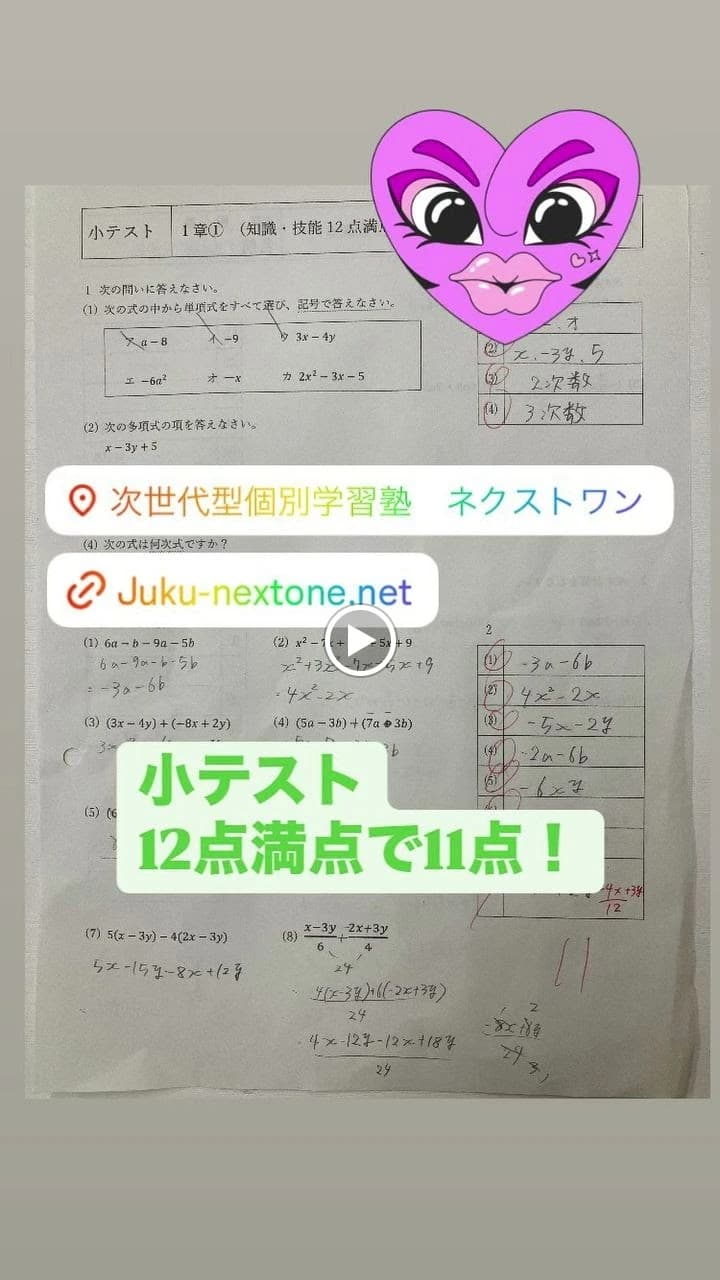 小テスト 1章① (知識・技能 12点満
1 次の問いに答えなさい。
(1) 次の式の中から単項式をすべて選び、記号で答えなさい。
ア a－8 イ －9 ウ 3x－4y
エ －6a² オ －x カ 2x²－3x－5
オ
(2) x, -3y, 5
(3) 2次数
(4) 3次数
(2) 次の多項式の項を答えなさい。
x－3y＋5
次世代型個別学習塾 ネクストワン
(4) 次の式は何次式ですか？
Juku-nextone.net
(1) 6a－b－9a－5b
6a-9a-b-5b
=-3a-6b
(2) x²－7x＋ 5x＋9
=4x²-2x
(3) (3x－4y)＋(－8x＋2y)
(4) (5a－3b)＋(7a 3b)
2
(1) -3a-6b
(2) 4x²-2x
(3) -5x-2y
(4) -2a-6b
(5) -6xy
-4x+3y
12
小テスト
12点満点で11点！
(5) (6
(7) 5(x－3y)－4(2x－3y)
5x-15y-8x+12y
(8) x－3y/6 + -2x＋3y/4
24
4(x-3y)+6(-2x+3y)
24
4x-12y-12x+18y
24
11
-8x+6y
24
3